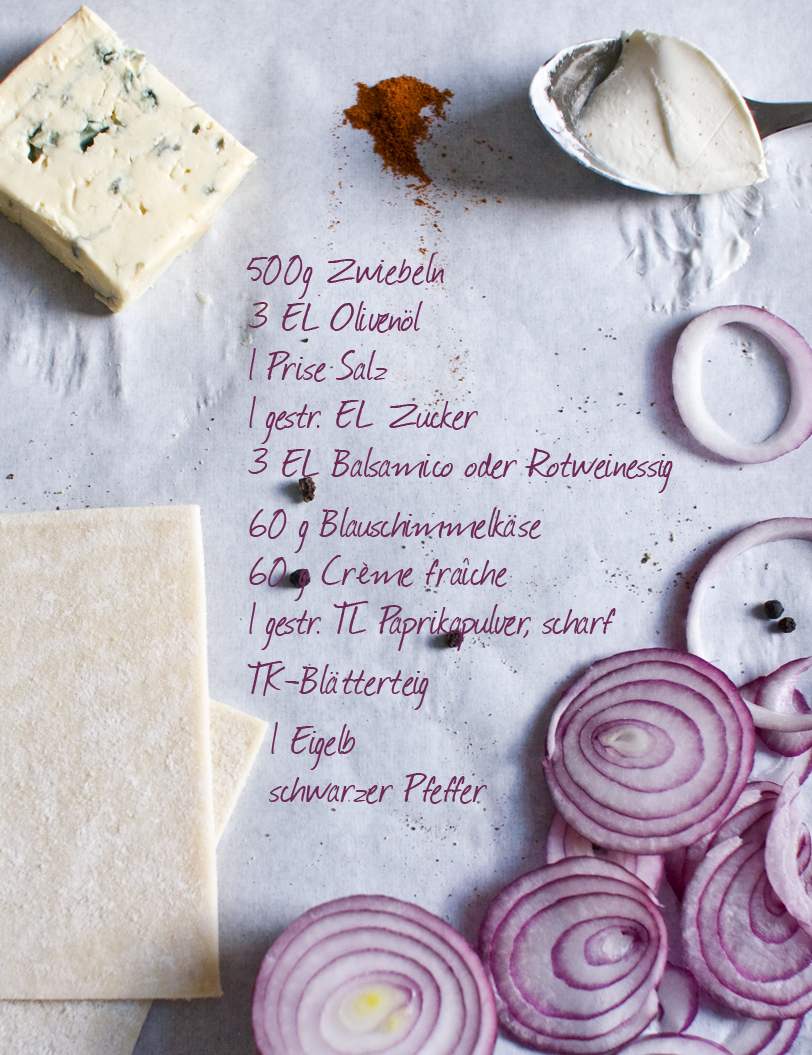 500g Zwiebeln
3 EL Olivenöl
1 Prise Salz
1 gestr. EL Zucker
3 EL Balsamico oder Rotweinessig
60 g Blauschimmelkäse
60 g Crème fraîche
1 gestr. TL Paprikapulver, scharf
TK-Blätterteig
1 Eigelb
schwarzer Pfeffer